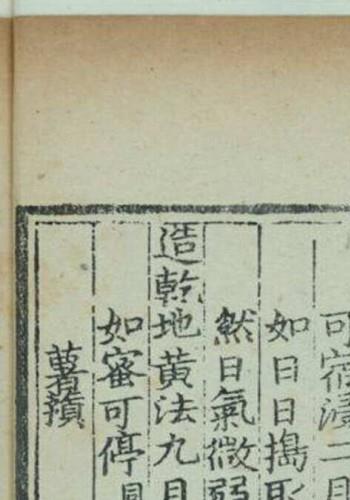 可宿漬二日
如日日搗取
然日氣微弱
造乾地黄法九月
如蜜可停
薯蕷